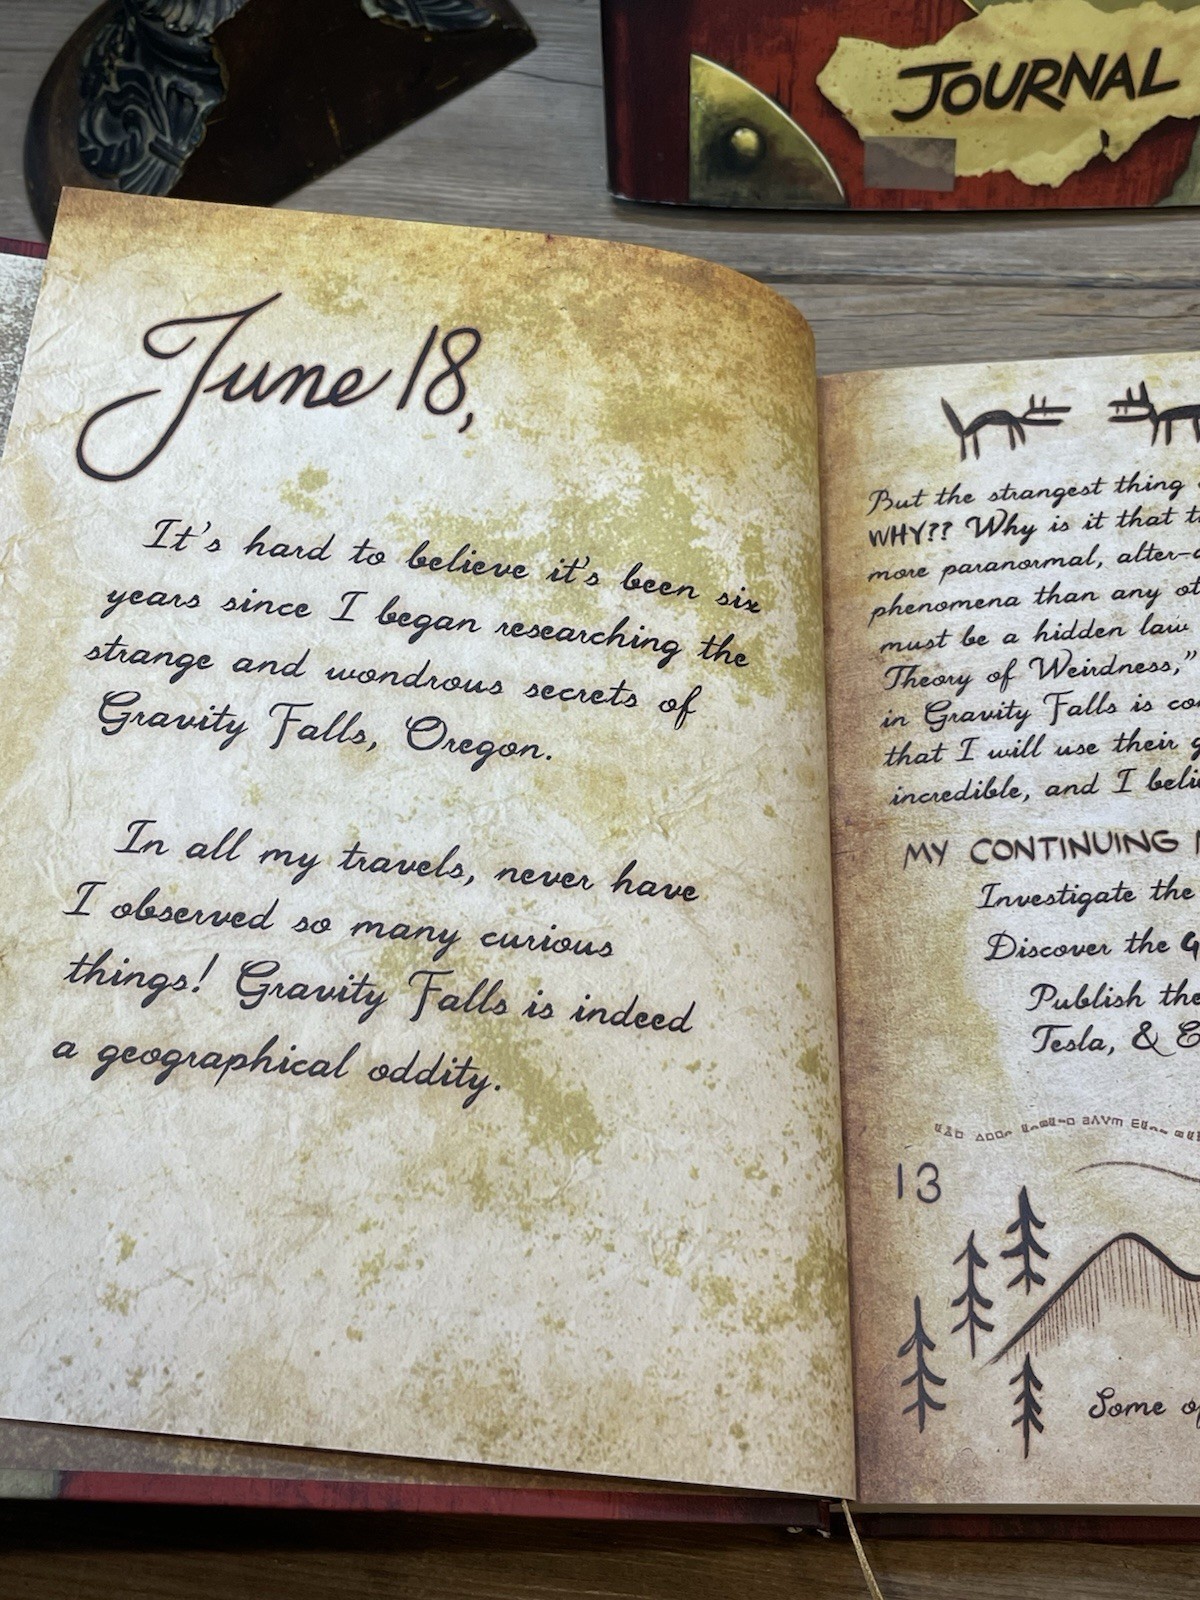 JOURNAL
June 18,
It's hard to believe it's been six
years since I began researching the
strange and wondrous secrets of
Gravity Falls, Oregon.
In all my travels, never have
I observed so many curious
things! Gravity Falls is indeed
a geographical oddity.
But the strangest thing
WHY?? Why is it that
more paranormal,
phenomena than any
must be a hidden law
Theory of Weirdness,"
in Gravity Falls is
that I will use their
incredible, and I
MY CONTINUING
Investigate the
Discover the
Publish the
Tesla, &
13
Some